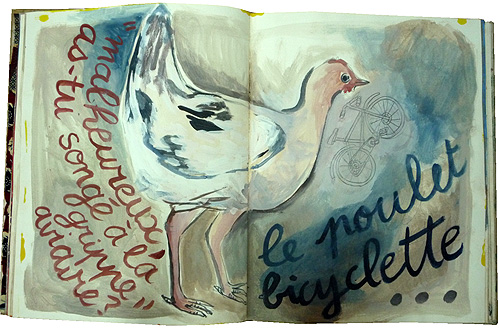 "malheureux,
as-tu songé à la
grippe
aviaire"
le poulet
bicyclette
...